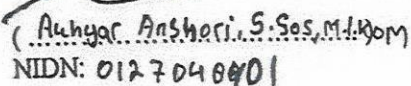 ( Akhyar Anshori, S.Sos, M.I.Kom
NIDN: 0127048401